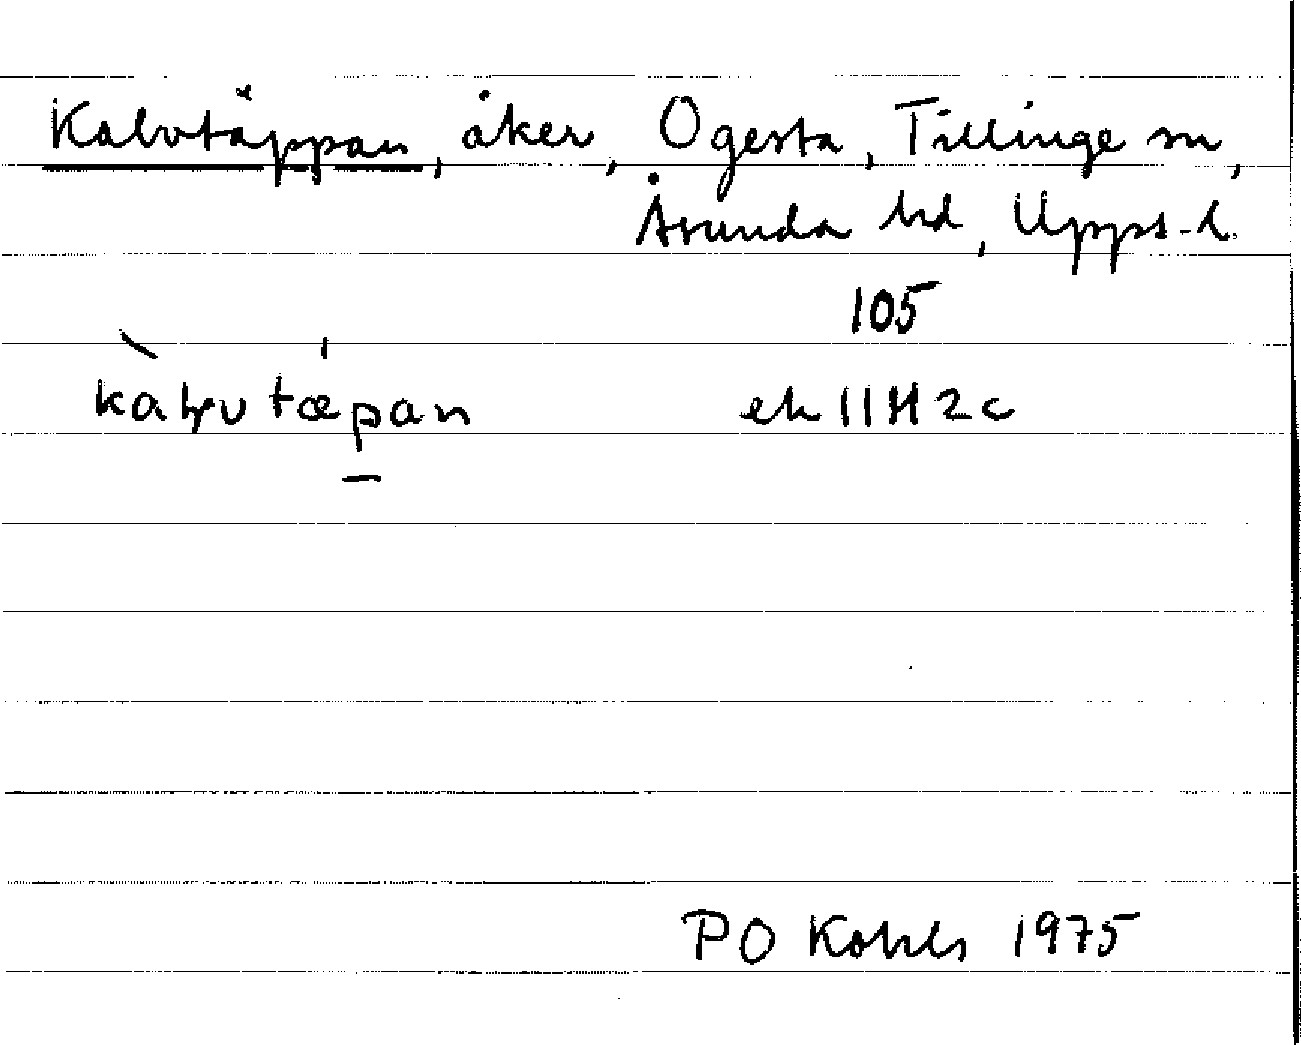 Kalvtäppan, åker, Ogesta, Tillinge sn,
Åsunda hd, Upps-l.
105
kalvtæpan ek 11H2c
PO Kohls 1975